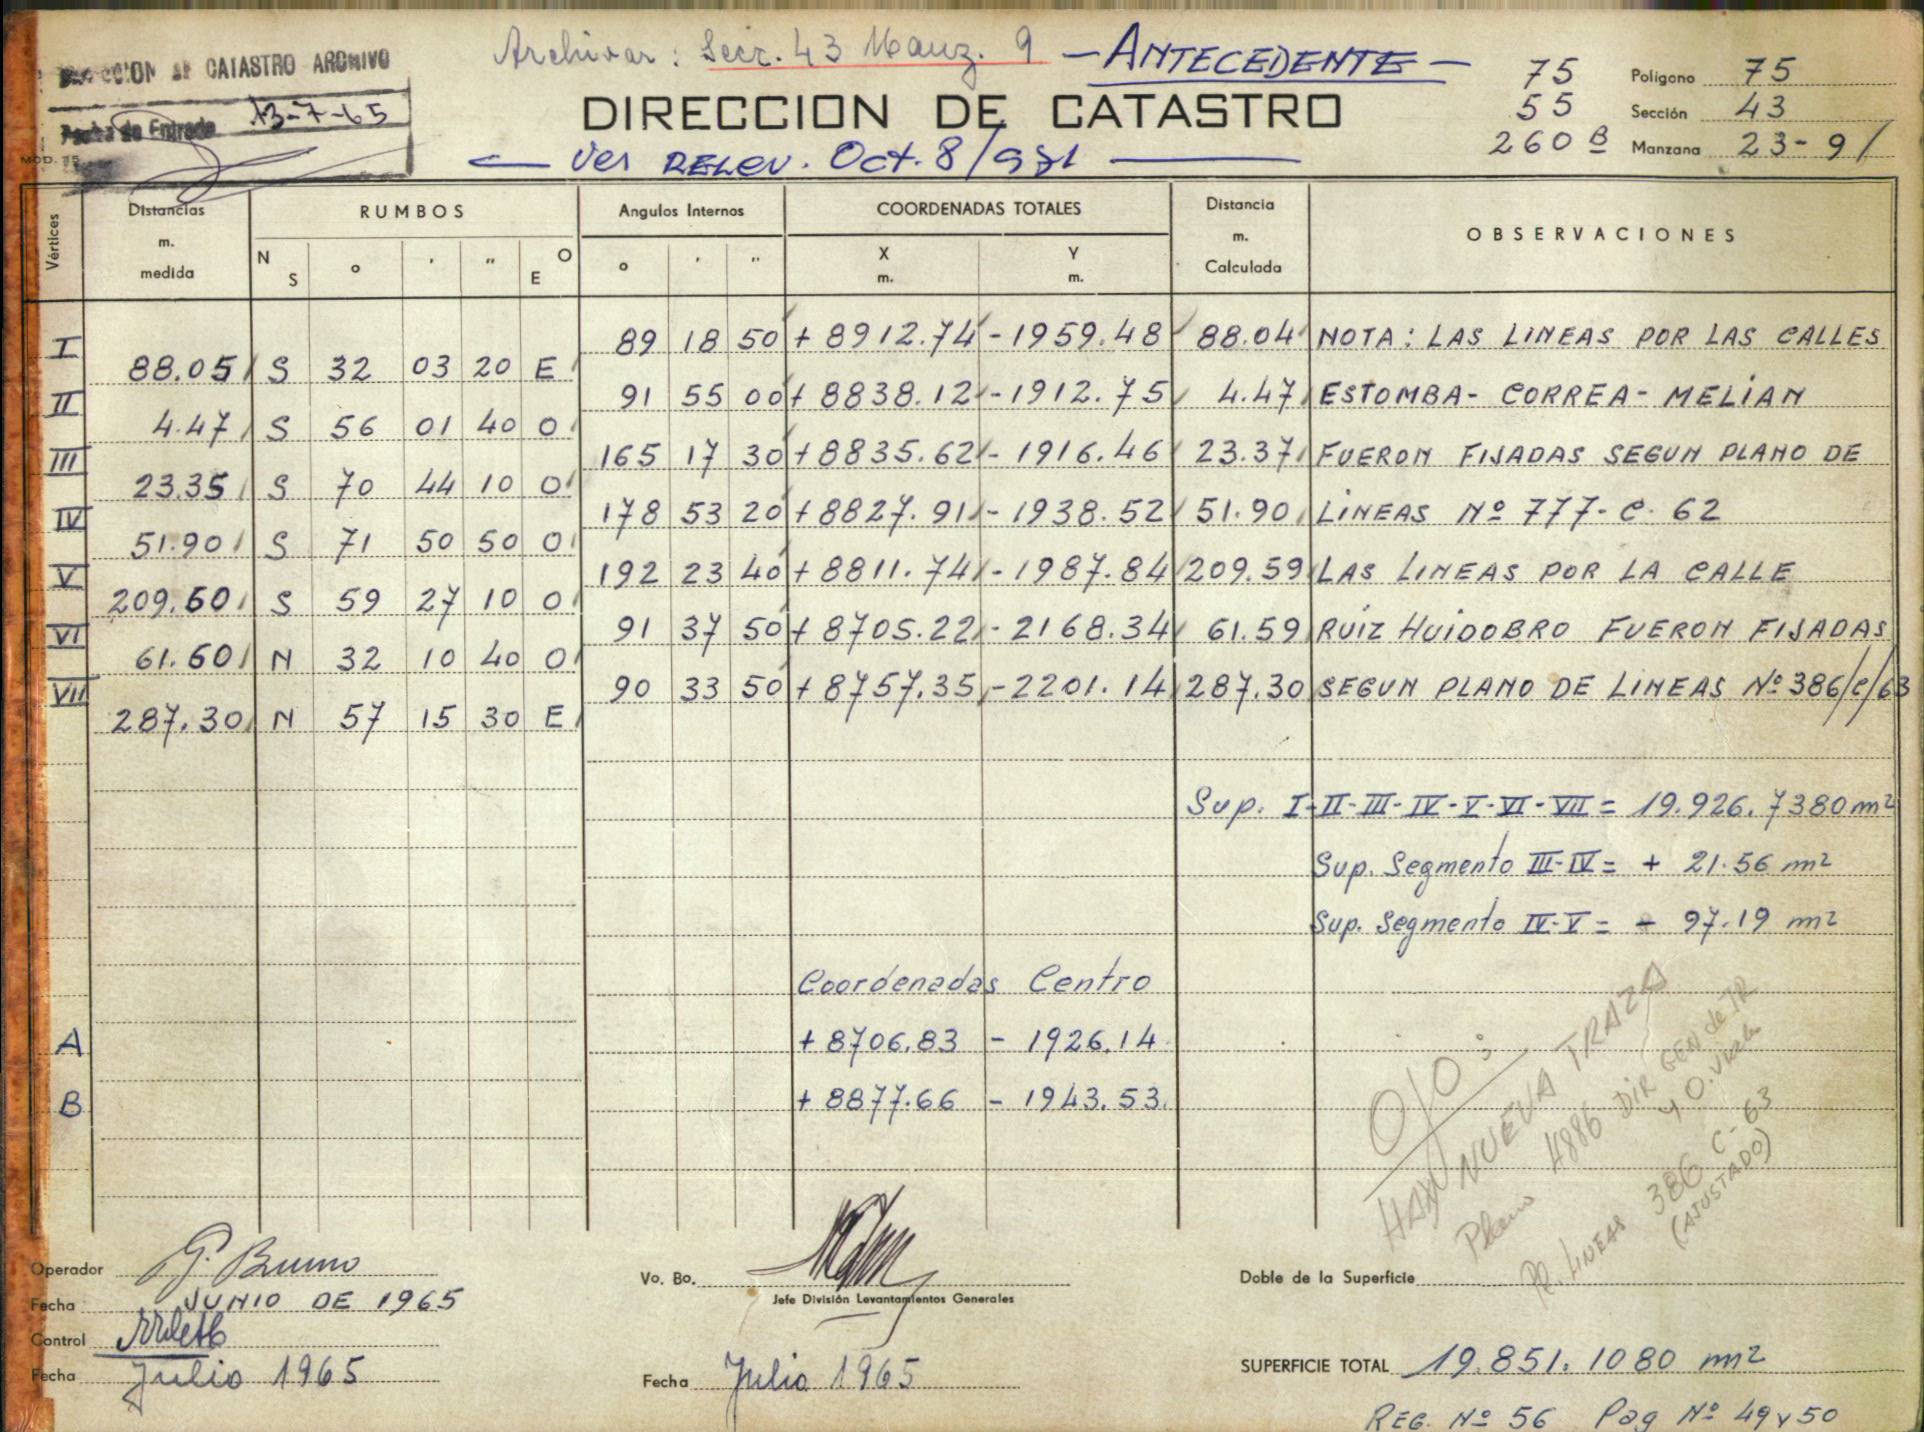 Archivar: Secc. 43 Manz. 9 - ANTECEDENTE -
DIRECCION DE CATASTRO ARCHIVO
Fecha de Entrada 13-7-65
MOD. 75
DIRECCION DE CATASTRO
Ver RELEV. Oct. 8/971
75 Polígono 75
55 Sección 43
260 B Manzana 23-9/
Vértices
Distancias m. medida
RUMBOS
N S ° ' " O E
Angulos Internos
° ' "
COORDENADAS TOTALES
X m. Y m.
Distancia m. Calculada
OBSERVACIONES
I 89 18 50 + 8912.74 - 1959.48 88.04 NOTA: LAS LINEAS POR LAS CALLES
88.05 S 32 03 20 E
II 91 55 00 + 8838.12 - 1912.75 4.47 ESTOMBA - CORREA - MELIAN
4.47 S 56 01 40 O
III 165 17 30 + 8835.62 - 1916.46 23.37 FUERON FIJADAS SEGUN PLANO DE
23.35 S 70 44 10 O
IV 178 53 20 + 8827.91 - 1938.52 51.90 LINEAS Nº 777-C-62
51.90 S 71 50 50 O
V 192 23 40 + 8811.74 - 1987.84 209.59 LAS LINEAS POR LA CALLE
209.60 S 59 27 10 O
VI 91 37 50 + 8705.22 - 2168.34 61.59 RUIZ HUIDOBRO FUERON FIJADAS
61.60 N 32 10 40 O
VII 90 33 50 + 8757.35 - 2201.14 287.30 SEGUN PLANO DE LINEAS Nº 386/C/63
287.30 N 57 15 30 E
Sup. I-II-III-IV-V-VI-VII = 19.926.7380 m2
Sup. Segmento III-IV = + 21.56 m2
Sup. Segmento IV-V = - 97.19 m2
Coordenadas Centro
A + 8706.83 - 1926.14
B + 8877.66 - 1943.53
OJO:
HAY NUEVA TRAZA
Plano 4886 DIR GEN de
y O.
Pl. LINEAS 386 C-63
(AJUSTADO)
Operador G. Bruno
Fecha JUNIO DE 1965
Control
Fecha Julio 1965
Vo. Bo.
Jefe División Levantamientos Generales
Fecha Julio 1965
Doble de la Superficie
SUPERFICIE TOTAL 19.851.1080 m2
REG. Nº 56 Pag Nº 49 y 50